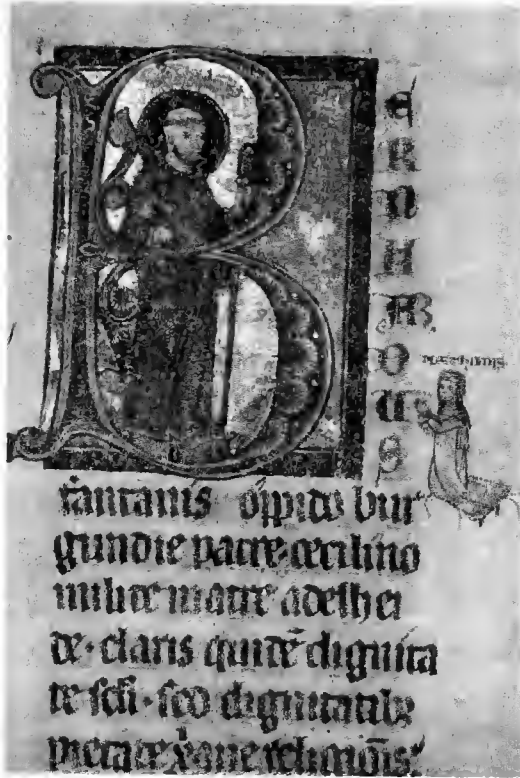 B
e
r
n
h
AR
d
u
s
fantanis oppido bur
gundie patre tecilino
milite matre adelhei
de · claris quidē dignita
te scli · sed dignitatibꝫ
pietate xp̄ane religiōis